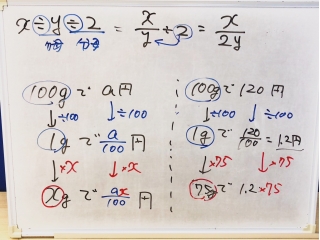 x÷y÷2 = x/y ÷ 2 = x/2y
100gで a円
↓÷100 ↓÷100
1gで a/100 円
↓×x ↓×x
xgで ax/100 円
100gで 120円
↓÷100 ↓÷100
1gで 120/100 = 1.2円
↓×75 ↓×75
75gで 1.2×75